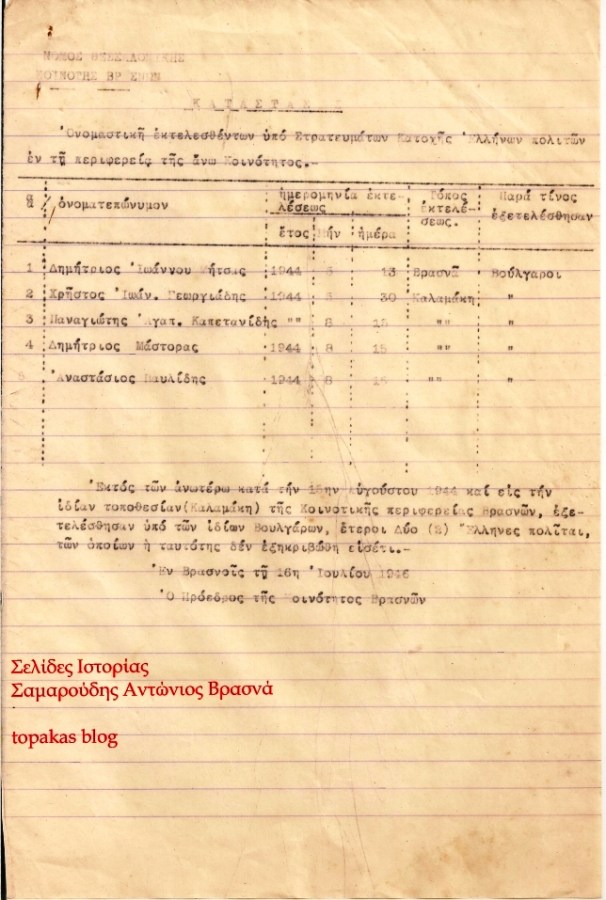 ΝΟΜΟΣ ΘΕΣΣΑΛΟΝΙΚΗΣ
ΚΟΙΝΟΤΗΣ
ΚΑΤΑΣΤΑΣ
Ὀνομαστική ἐκτελεσθέντων ὑπό Στρατευμάτων Κατοχῆς Ἑλλήνων πολιτῶν
ἐν τῇ περιφερείᾳ τῆς ἄνω Κοινότητος.-
ὀνοματεπώνυμον ἡμερομηνία ἐκτε- Τόπος Παρά τίνος
λέσεως ἐκτελέ- ἐξετελέσθησαν
σεως.
ἔτος Μήν ἡμέρα
1 Δημήτριος Ἰωάννου 1944 13 Βρασνᾶ Βούλγαροι
2 Χρῆστος Ἰωάν. Γεωργιάδης 1944 30 Καλαμάκη "
3 Παναγιώτης Ἀγαπ. Καπετανίδης "" 8 15 "" "
4 Δημήτριος Μάστορας 1944 8 15 "" "
5 Ἀναστάσιος Παυλίδης 1944 8 15 "" "
Ἐκτός τῶν ἀνωτέρω κατά τήν 15ην Αὐγούστου 1944 καί εἰς τήν
ἰδίαν τοποθεσίαν(Καλαμάκη) τῆς Κοινοτικῆς περιφερείας Βρασνῶν, ἐξε-
τελέσθησαν ὑπό τῶν ἰδίων Βουλγάρων, ἕτεροι Δύο (2) Ἕλληνες πολῖται,
τῶν ὁποίων ἡ ταυτότης δέν ἐξηκριβώθη εἰσέτι.-
Ἐν Βρασνοῖς τῇ 16η Ἰουλίου 1946
Ὁ Πρόεδρος τῆς Κοινότητος Βρασνῶν
Σελίδες Ιστορίας
Σαμαρούδης Αντώνιος Βρασνά
topakas blog